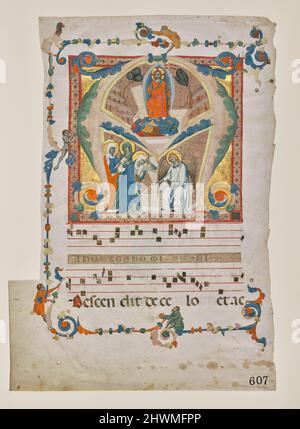 Descen dit de ce lo et ac
607
alamy
Image ID: 2WWMFPP
www.alamy.com